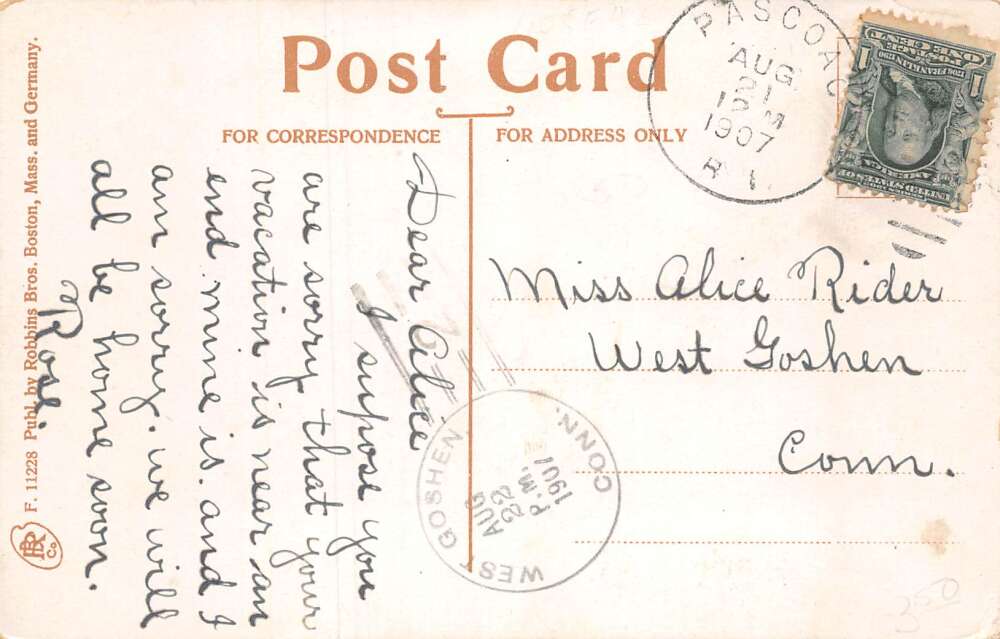 Post Card
FOR CORRESPONDENCE
FOR ADDRESS ONLY
PASCOAG
AUG
21
12 M
1907
R.I.
ONE CENT
POSTAGE
1706 FRANKLIN 1790
1 1
UNITED STATES OF
AMERICA
SERIES 1902
Miss Alice Rider
West Goshen
Conn.
Dear Alice
I supose you
are sorry that your
vacation is near an
end mine is. and I
am sorry. we will
all be home soon.
Rose.
WEST GOSHEN
CONN.
AUG
22
P.M.
1907
F. 11228 Publ. by Robbins Bros. Boston, Mass. and Germany.
RB
Co
3.50